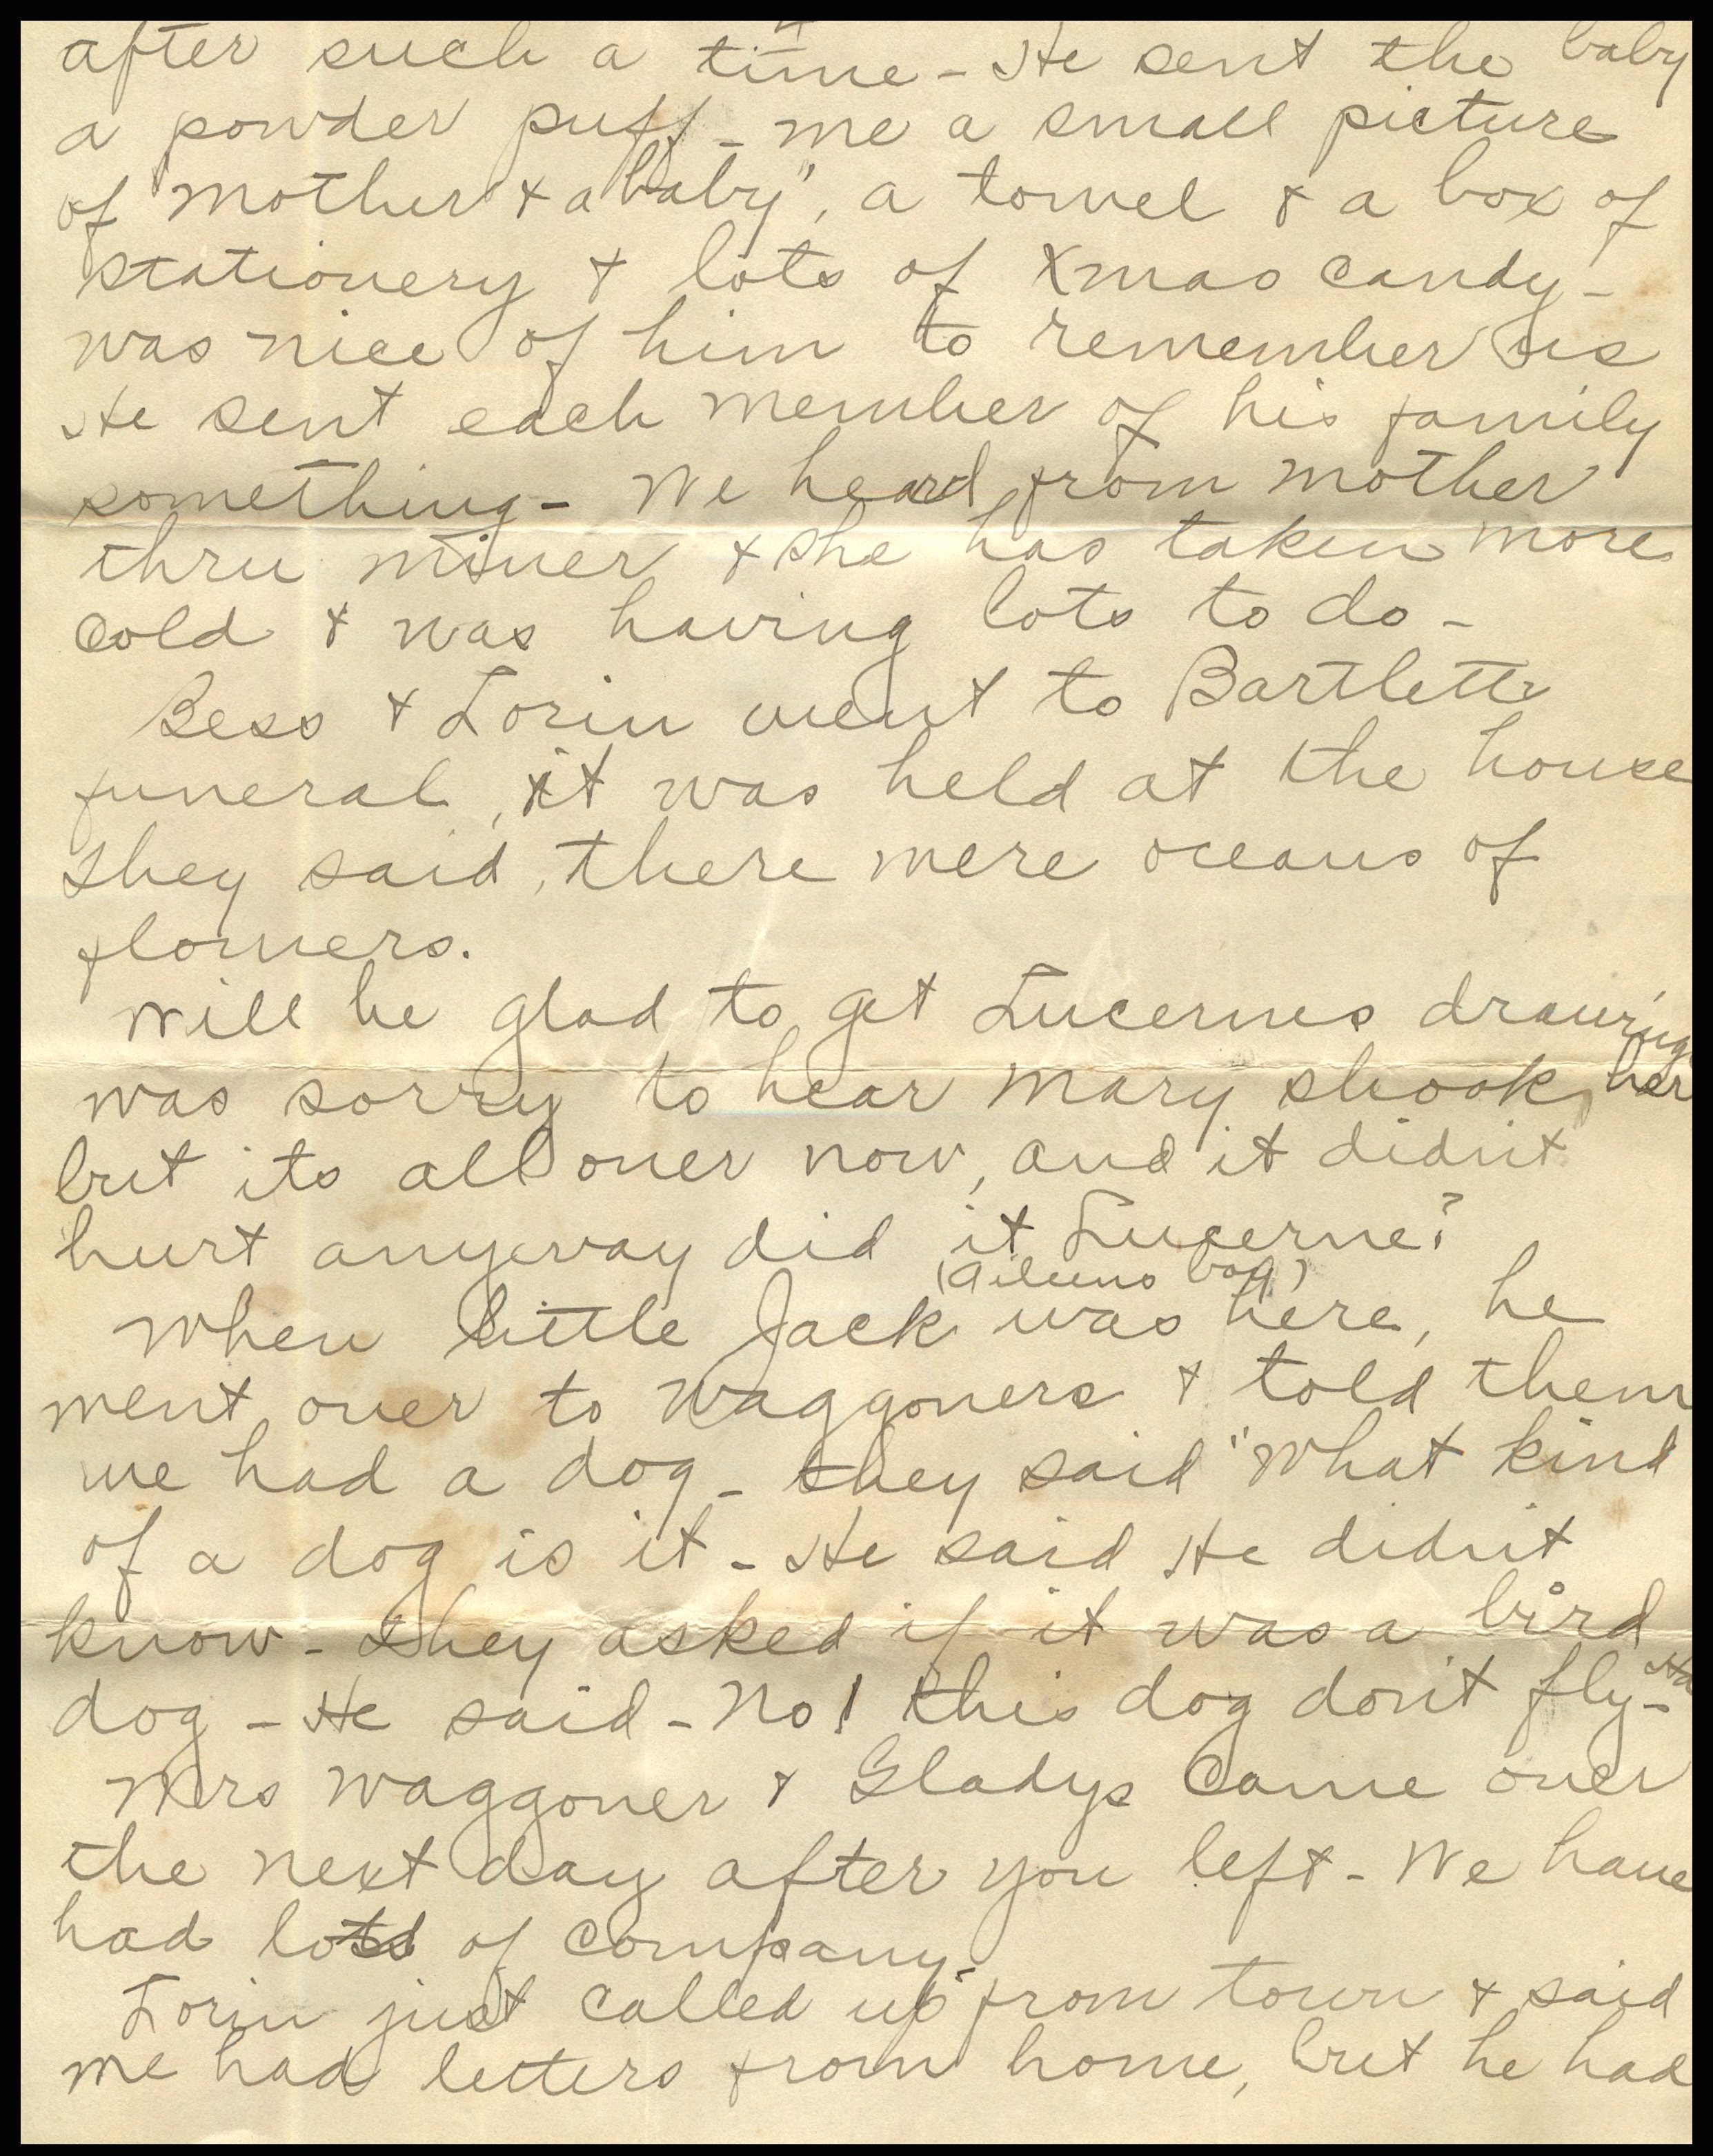 after such a time - He sent the baby
a powder puff - me a small picture
of "Mother & a baby", a towel & a box of
stationery & lots of Xmas candy -
was nice of him to remember us
He sent each member of his family
something - We heard from Mother
thru Miner & she has taken more
cold & was having lots to do -
Bess & Lorin went to Bartletts
funeral, it was held at the house
They said, there were oceans of
flowers.
Will be glad to get Lucernes drawing
was sorry to hear Mary shook her
but its all over now, and it didn't
hurt anyway did it Lucerne?
(Aileens boy)
When little Jack was here, he
went over to Waggoners & told them
we had a dog - They said "What kind
of a dog is it - He said He didn't
know - They asked if it was a bird
dog - He said - No! this dog don't fly - Ha
Mrs Waggoner & Gladys came over
the next day after you left - We have
had lots of company -
Lorin just called up from town & said
we had letters from home, but he had